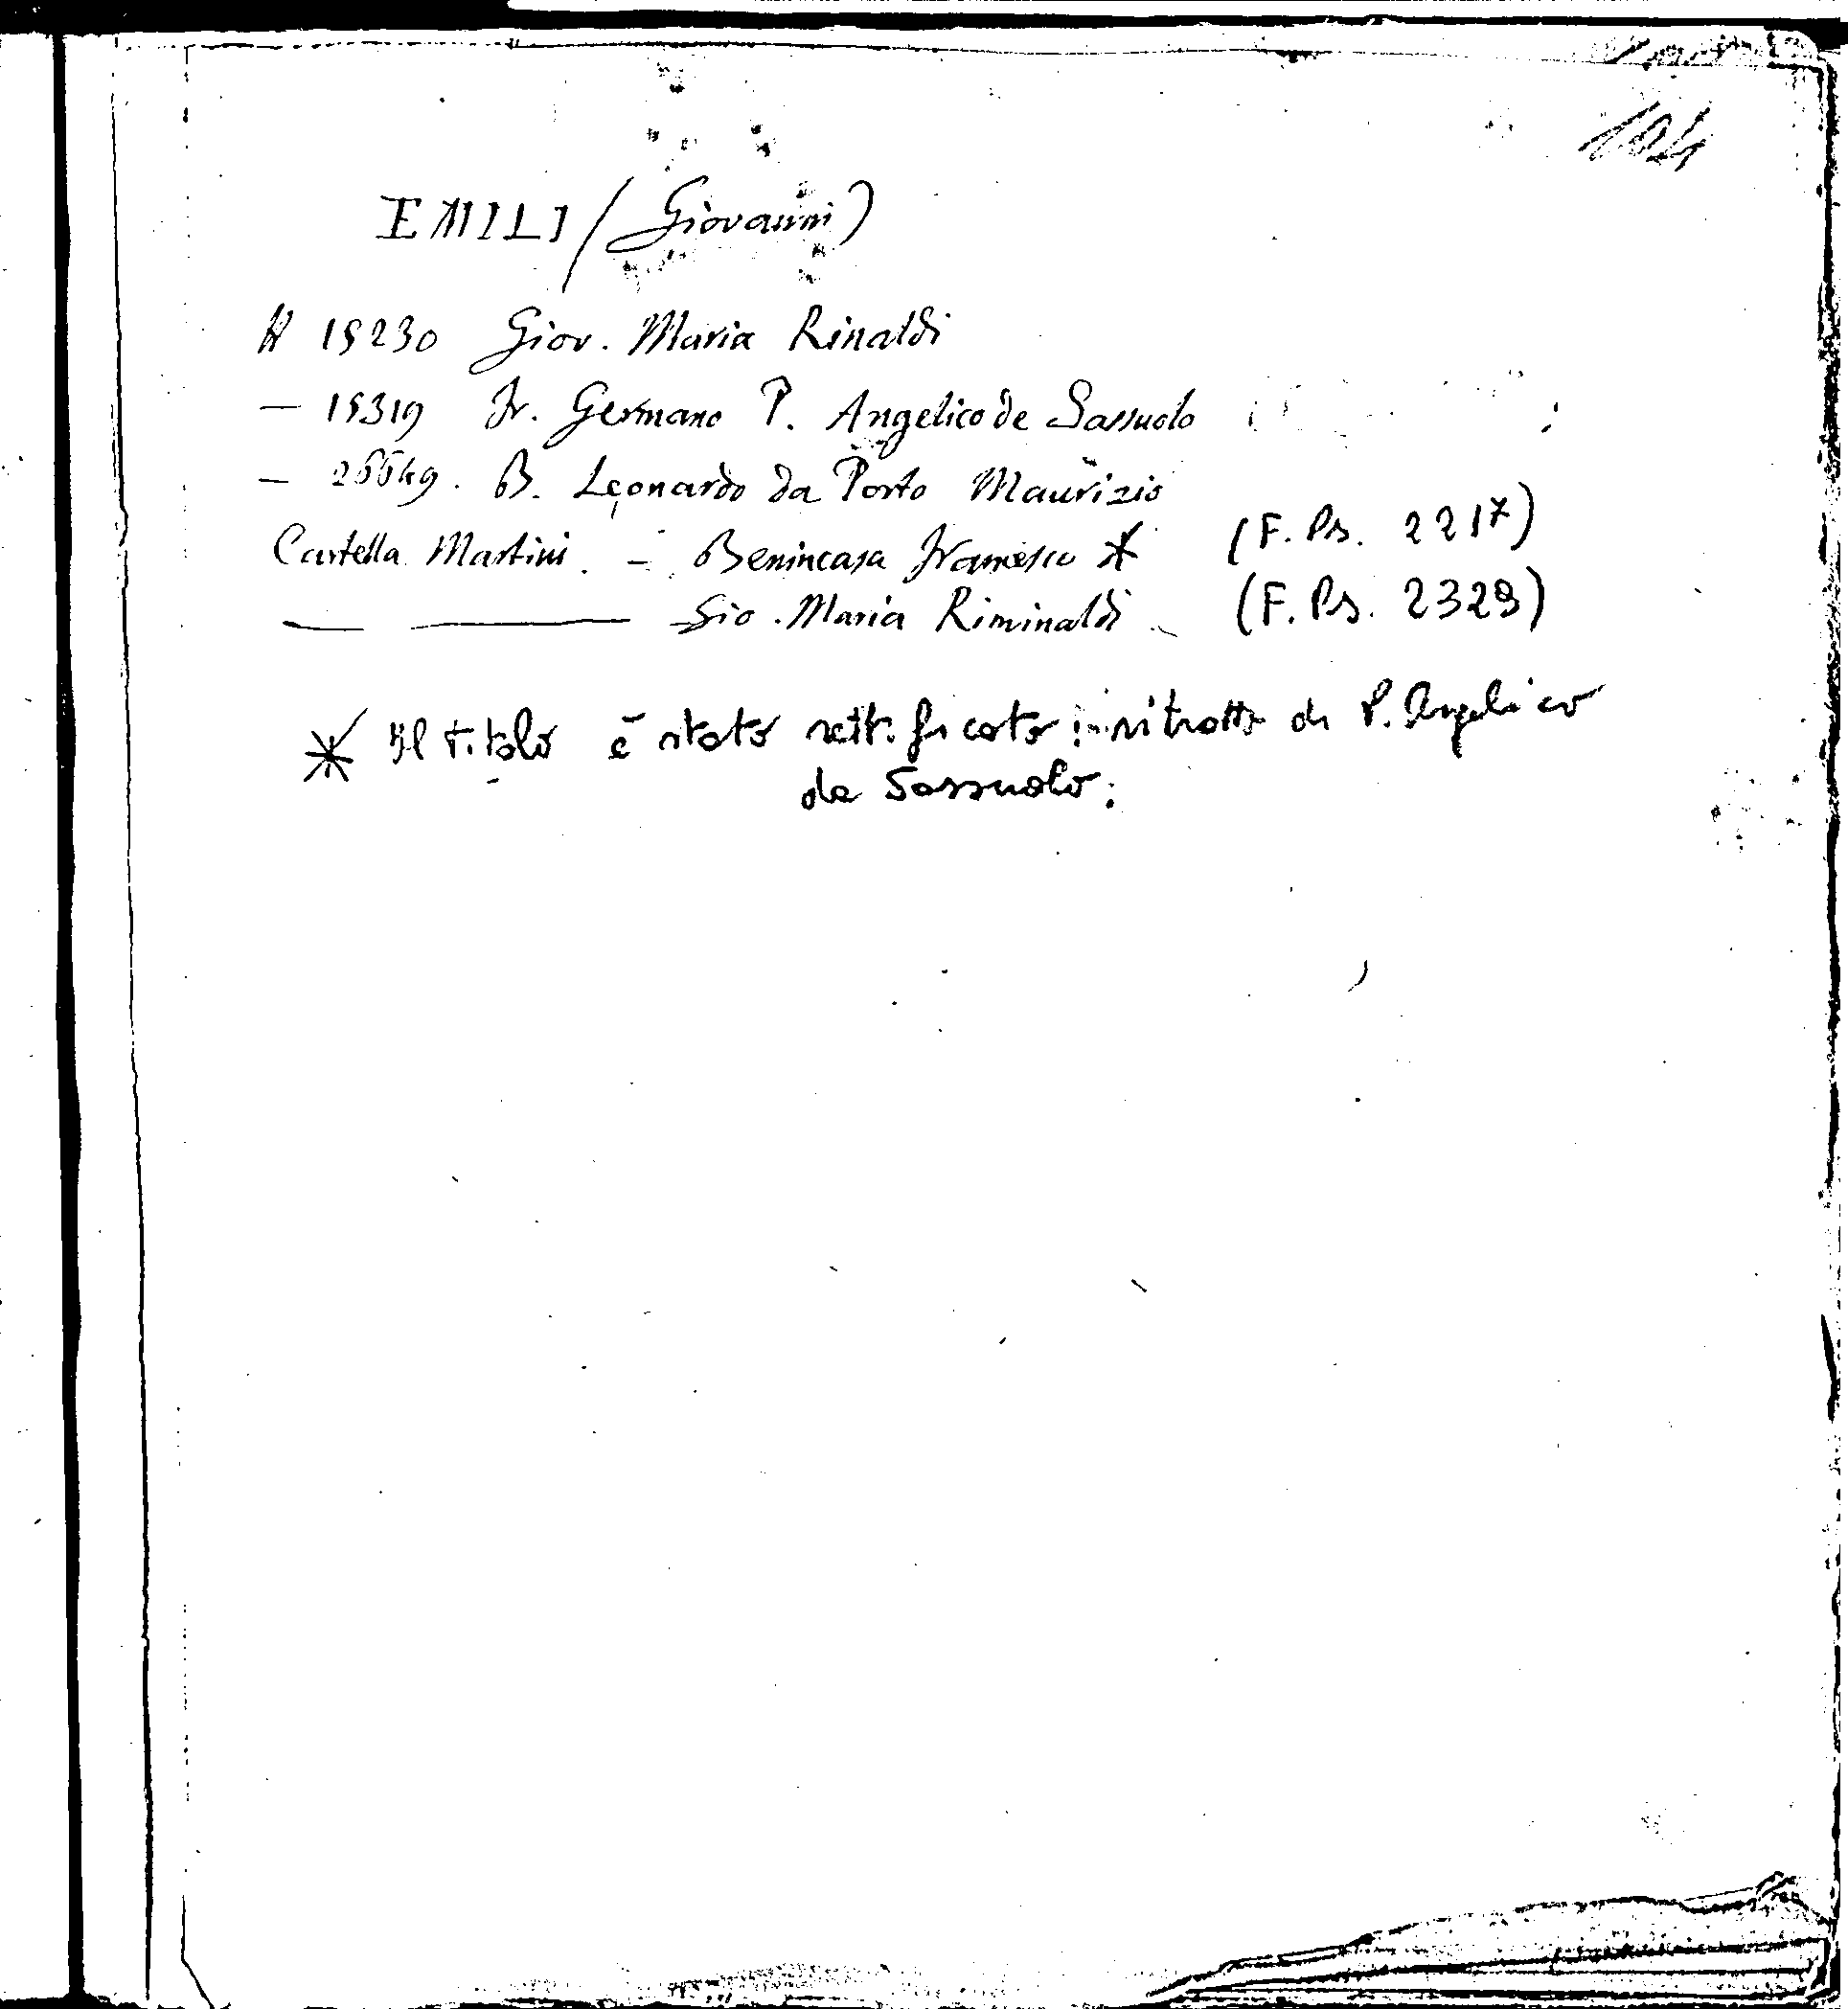 104
EMILI (Giovanni)
H 15230 Giov. Maria Rinaldi
— 15319 Fr. Germano P. Angelico de Sassuolo
— 26649. B. Leonardo da Porto Maurizio
Cartella Martini. — Benincasa Francesco * (F. Ps. 2217)
— — Gio. Maria Riminaldi — (F. Ps. 2329)
* Il titolo è stato rettificato in ritratto di P. Angelico
da Sassuolo.